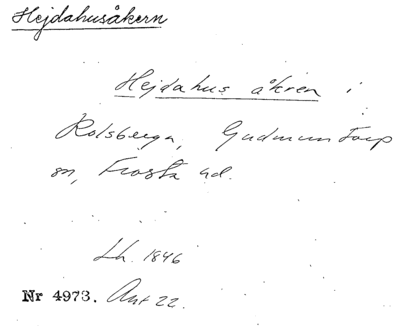 Hejdahusåkern
Hejdahus åkren i
Rolsberga, Gudmuntorp
sn, Frosta hd.
Lh. 1846
Nr 4973. Ant 22.